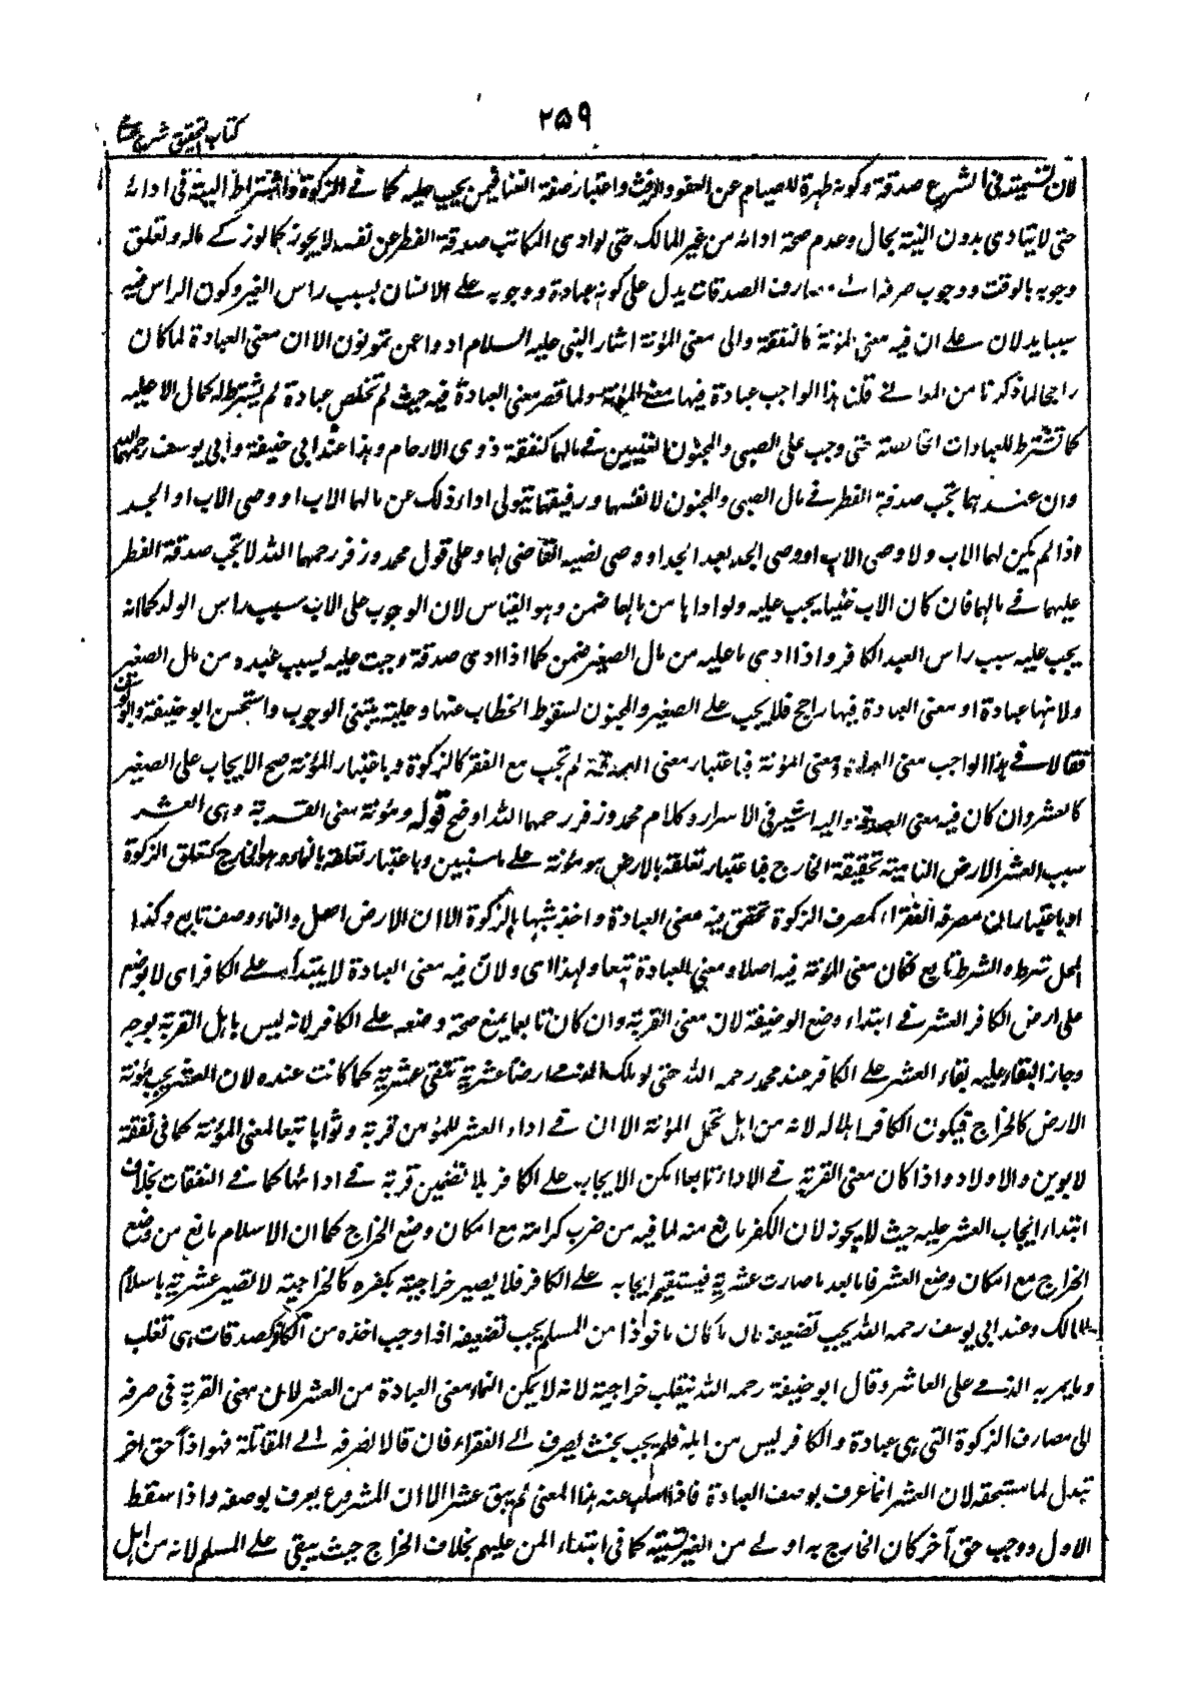 ٢٥٩
كتاب التحقيق شرح
لان تسميته فى الشرع صدقة وكونه طهرة للصيام عن اللغو والرفث واعتبار صفة الغنا فيمن يجب عليه كما فى الزكوة واشتراط النية فى ادائه
حتى لا يتادى بدون النية بحال وعدم صحة ادائه من غير المالك حتى لو ادى المكاتب صدقة الفطر عن نفسه لا يجوز كما لو زكى ماله وتعلق
وجوبه بالوقت ووجوب صرفه الى مصارف الصدقات يدل على كونه عبادة ووجوبه على الانسان بسبب راس الغير وكون الراس فيه
سببا يدلان على ان فيه معنى المؤنة كالنفقة والى معنى المؤنة اشار النبى عليه السلام ادوا عمن تمونون الا ان معنى العبادة لما كان
راجحا لما ذكرنا من المعانى قلنا هذا الواجب عبادة فيها معنى المؤنة ولما قصر معنى العبادة فيه حيث لم تخلص عبادة لم يشترط له كمال الاهلية
كما تشترط للعبادات الخالصة حتى وجب على الصبى والمجنون الغنيين فى مالهما كنفقة ذوى الارحام وهذا عند ابى حنيفة وابى يوسف رحمهما الله
وان عندهما تجب صدقة الفطر فى مال الصبى والمجنون لانفسهما ورقيقهما يتولى اداء ذلك عن مالهما الاب او وصى الاب او الجد
اذا لم يكن لهما الاب ولا وصى الاب او وصى الجد بعد الجد او وصى نصبه القاضى لهما وعلى قول محمد وزفر رحمهما الله لا تجب صدقة الفطر
عليهما فى مالهما فان كان الاب غنيا يجب عليه ولو اداها من مالهما ضمن وهو القياس لان الوجوب على الاب بسبب راس الولد كما انه
يجب عليه بسبب راس العبد الكافر واذا ادى ما عليه من مال الصغير ضمن كما اذا ادى صدقة وجبت عليه بسبب عبده من مال الصغير
ولانها عبادة او معنى العبادة فيها راجح فلا يجب على الصغير والمجنون لسقوط الخطاب عنهما وعليه يبتنى الوجوب واستحسن ابو حنيفة وابو يوسف
فقالا فى هذا الواجب معنى العبادة ومعنى المؤنة فباعتبار معنى الصدقة لم تجب مع الفقر كالزكوة وباعتبار المؤنة صح الايجاب على الصغير
كالعشر وان كان فيه معنى الصدقة واليه اشير فى الاسرار وكلام محمد وزفر رحمهما الله اوضح قوله ومؤنة معنى القربة وهى العشر
سبب العشر الارض النامية بحقيقة الخارج فباعتبار تعلقه بالارض هو مؤنة على ما سنبين وباعتبار تعلقه بالنماء وهو الخارج كتعلق الزكوة
او باعتبار ان مصرفه الفقراء كمصرف الزكوة تحقق فيه معنى العبادة واخذ شبها بالزكوة الا ان الارض اصل والنماء وصف تابع وكذا
المحل شرط والشرط تابع فكان معنى المؤنة فيه اصلا ومعنى العبادة تبعا ولهذا اى ولان فيه معنى العبادة لا يبتدأ على الكافر اى لا يوضع
على ارض الكافر العشر فى ابتداء وضع الوظيفة لان معنى القربة وان كان تابعا يمنع صحة وضعه على الكافر لانه ليس باهل القربة بوجه
وجاز البقاء عليه بقاء العشر على الكافر عند محمد رحمه الله حتى لو ملك الذمى ارضا عشرية تبقى عشرية كما كانت عنده لان العشر يجب مؤنة
الارض كالخراج فيكون الكافر اهلا له لانه من اهل تحمل المؤنة الا ان فى اداء العشر للمؤمن قربة وثوابا تبعا لمعنى المؤنة كما فى نفقة
لابوين والاولاد واذا كان معنى القربة فى الاداء تابعا امكن الايجاب على الكافر بلا تضمين قربة فى ادائها كما فى النفقات بخلاف
ابتداء ايجاب العشر عليه حيث لا يجوز لان الكفر مانع منه لما فيه من ضرب كرامة مع امكان وضع الخراج كما ان الاسلام مانع من وضع
الخراج مع امكان وضع العشر فاما بعد ما صارت عشرية فيستقيم ايجابه على الكافر فلا يصير خراجية بكفره كالخراجية لا تصير عشرية باسلام
المالك وعند ابى يوسف رحمه الله يجب تضعيفه لان ما كان ماخوذا من المسلم يجب تضعيفه اذا وجب اخذه من الكافر كصدقات بنى تغلب
وما يمر به الذمى على العاشر وقال ابو حنيفة رحمه الله تنقلب خراجية لانه لا يمكن الغاء معنى العبادة من العشر لان معنى القربة فى صرفه
الى مصارف الزكوة التى هى عبادة والكافر ليس من اهله فلم يجب بحيث يصرف الى الفقراء فان قالا نصرفه الى المقاتلة فهو اذا حق اخر
تبدل لما مستحقه لان العشر انما عرف بوصف العبادة فاذا سلب عنه هذا المعنى لم يبق عشرا الا ان المشروع يعرف بوصفه واذا سقط
الاول ووجب حق آخر كان الخارج به اولى من الغير تسمية كما فى ابتداء المن عليهم بخلاف الخراج حيث يبقى على المسلم لانه من اهل